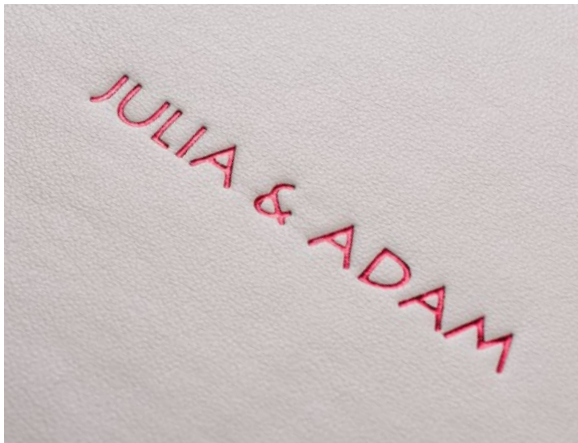 JULIA & ADAM